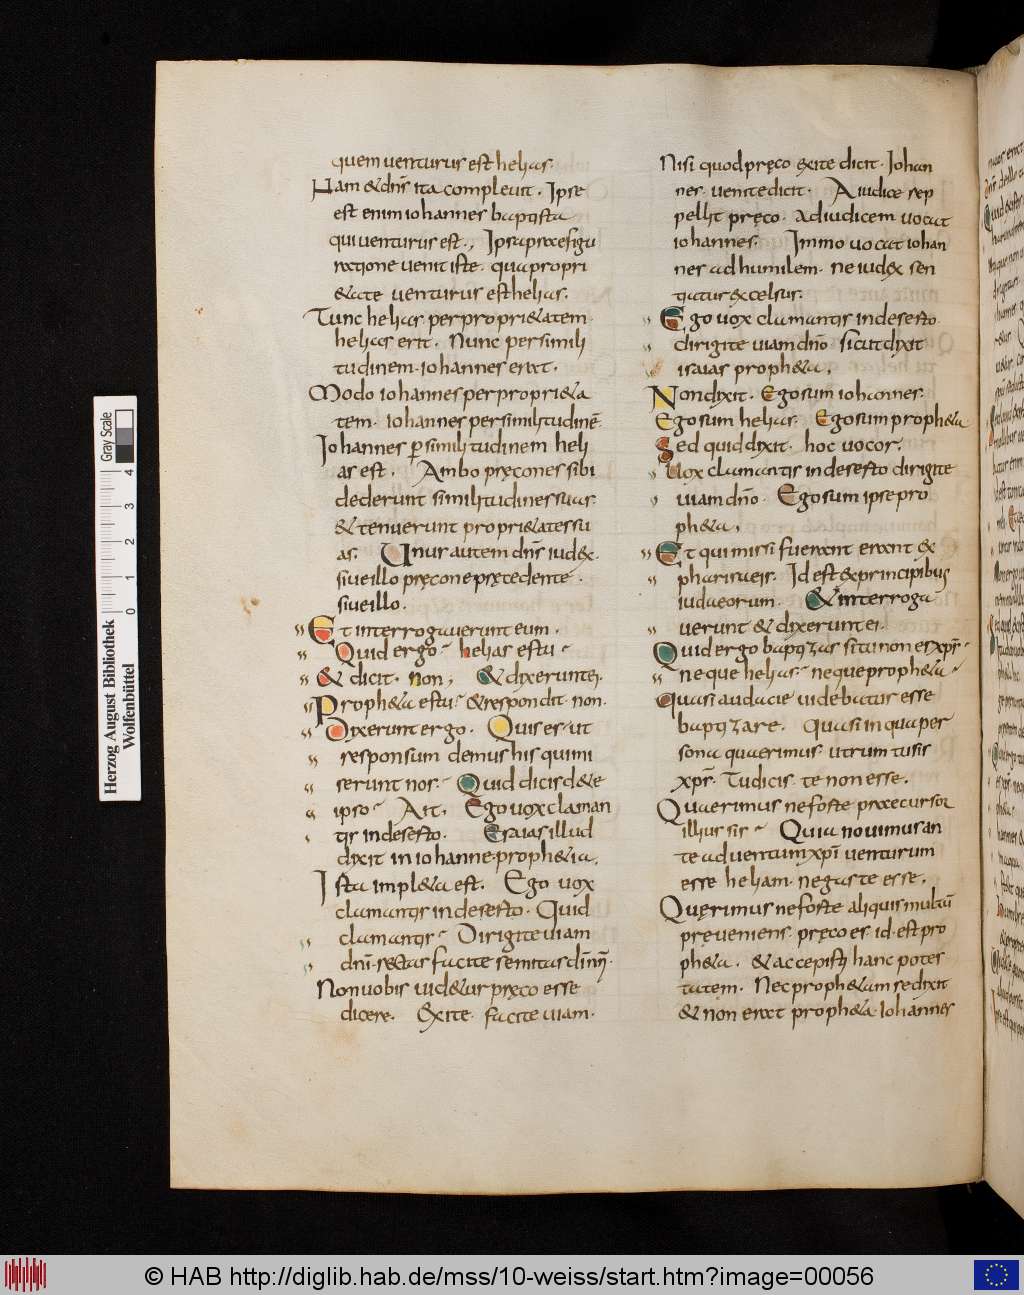 quem uenturus est helias.
Nam & dn̄s ita compleuit. Ipse
est enim iohannes baptista
qui uenturus est., Ipsa praefigu
ratione uenit iste. qua propri
&ate uenturus est helias.
Tunc helias per propri&atem.
helias erit. Nunc per simili
tudinem. iohannes erat.
Modo iohannes per propri&a
tem. iohannes per similitudinē.
Iohannes p̄ similitudinem heli
as est. Ambo pręcones sibi
dederunt similitudines suas.
& tenuerunt propri&ates su
as. Unus autem dn̄s iudex.
siue illo pręcone pręcedente.
siue illo.
Et interrogauerunt eum.
Quid ergo? helias es tu?
& dicit. non; & dixerunt ei.
Proph&a es tu? & respondit. non.
Dixerunt ergo. Quis es. ut
responsum demus his qui mi
serunt nos? Quid dicis d&e
ipso? Ait. Ego uox claman
tis in deserto. Esaias illud
dixit in iohanne. proph&ia.
Ista impl&a est. Ego uox
clamantis in deserto. Quid
clamantis? Dirigite uiam
dn̄i. rectas facite semitas
Non uobis uid&ur pręco esse
dicere. Exite. facite uiam.
Nisi quod pręco exite dicit. Iohan
nes. uenite dicit. A iudice rep
pellit pręco. ad iudicem uocat
iohannes. Immo uocat iohan
nes ad humilem. ne iudex sen
tiatur excelsus.
Ego uox clamantis in deserto.
dirigite uiam dn̄o. sicut dixit
isaias proph&a.
Non dixit. Ego sum iohannes.
Ego sum helias. Ego sum proph&a
Sed quid dixit. hoc uocor.
Uox clamantis in deserto dirigite
uiam dn̄o. Ego sum ipse pro
ph&a.
Et qui missi fuerant erant ex
pharisaeis. Id est ex principibus
iudaeorum. & interroga
uerunt & dixerunt ei.
Quid ergo baptizas si tu non es xp̄s?
neque helias? neque proph&a?
Quasi audacie uidebatur esse
baptizare. Quasi in qua per
sona quaerimus. utrum tu sis
xp̄s. Tu dicis. te non esse.
Quaerimus ne forte praecursor
illius sis? Quia nouimus an
te aduentum xp̄i uenturum
esse heliam. negas te esse.
Quęrimus ne forte aliquis multū
pręueniens. pręco es. id. est pro
ph&a. & accepisti hanc potes
tatem. Nec proph&am se dixit
& non erat proph&a. Iohannes
Gray Scale
4
3
2
1
0
Herzog August Bibliothek
Wolfenbüttel
© HAB http://diglib.hab.de/mss/10-weiss/start.htm?image=00056